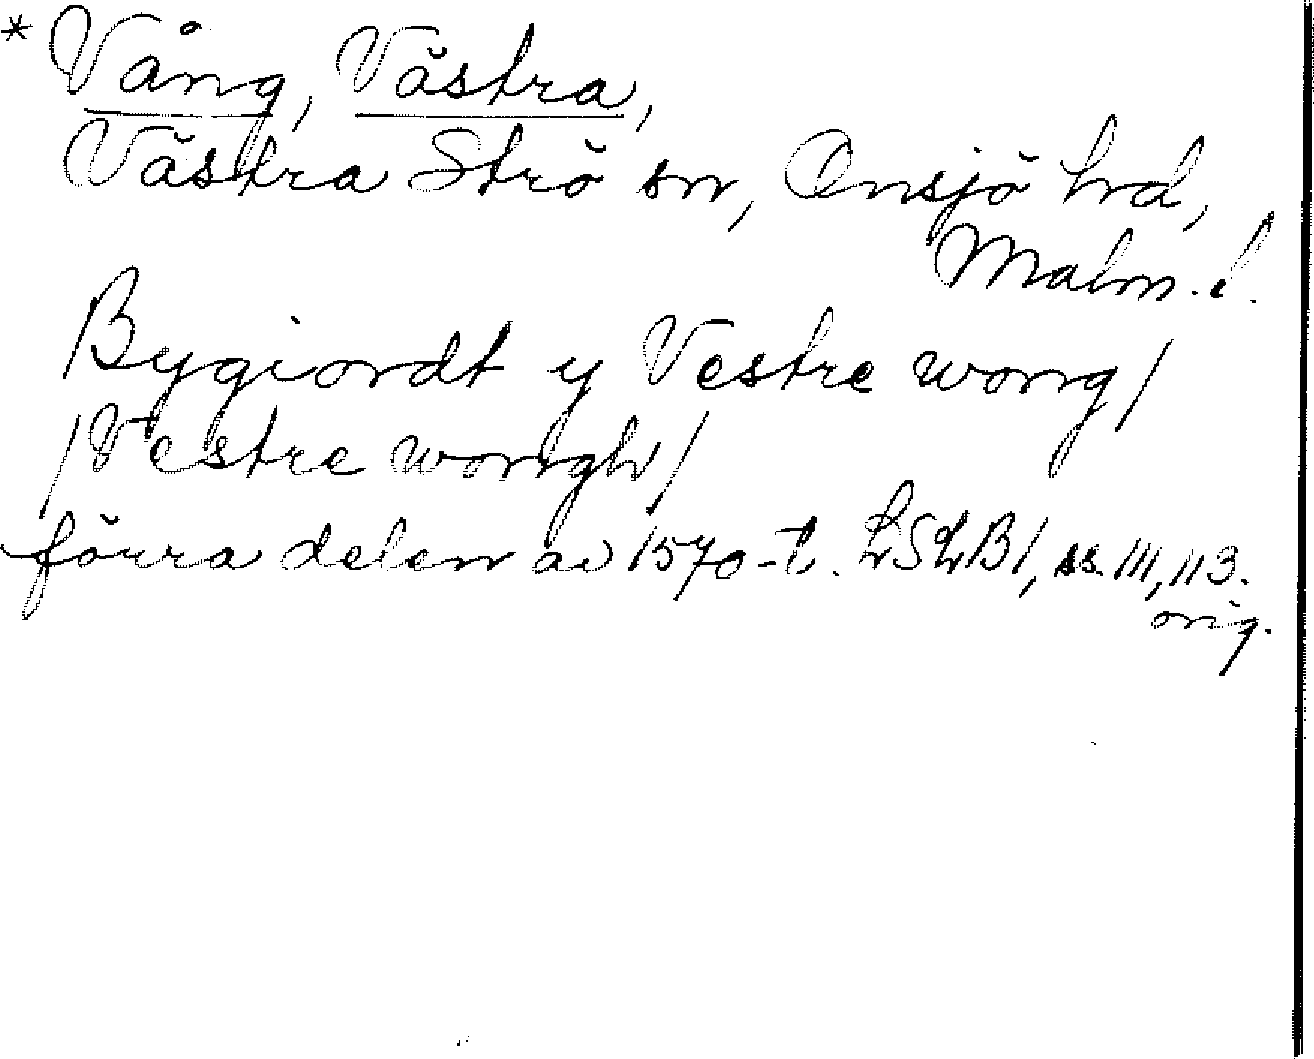 * Vång, Västra,
Västra Strö sn, Onsjö hd,
Malm. l.
/Bygiordt y Vestre wong/
/Vestre wongh/
förra delen av 1570-t. LSLB1, ss. 111, 113.
orig.